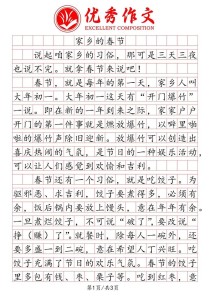 优秀作文
EXCELLENT COMPOSITION
家乡的春节
说起咱家乡的习俗，那可是三天三夜
也说不完。就拿春节来说吧！
春节，就是每年的第一天，家乡人叫
大年初一。大年初一这天有“开门爆竹”
一说。即在新的一年到来之际，家家户户
开门的第一件事就是燃放爆竹，以噼里啪
啦的爆竹声除旧迎新。放爆竹可以创造出
喜庆热闹的气氛，是节日的一种娱乐活动，
可以让人们感觉到欢愉和吉利。
春节还有一个习俗，就是吃饺子，为
驱邪恶、求吉利。饺子要煮得多，必须有
余，饺子下锅内要放
一旦煮烂饺子，不可说“破”了，要改说“
挣（赚）了”，就餐时，除每人一碗外，还
要多盛一到二碗，意在希望人丁兴旺，吃
饺子充满了节日的欢庆气氛。春节的饺子
里多包有钱、枣、栗子等。吃到红枣，意
第1页/共3页